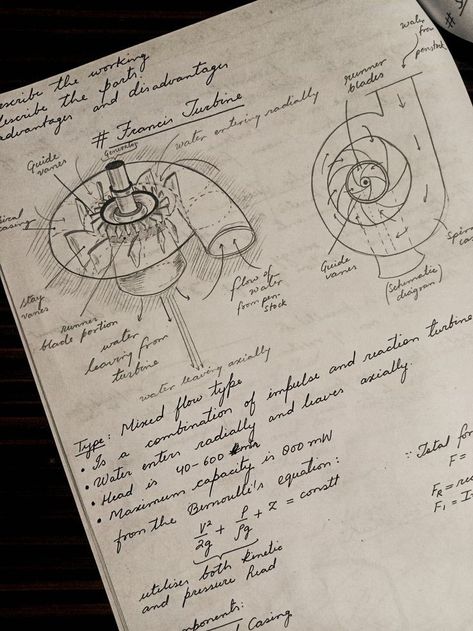 describe the working
describe the parts!
advantages and disadvantages
# Francis Turbine
Generator
water entering radially
Guide
vanes
casing
stay
vanes
runner
blade portion
water
leaving from
turbine
flow of
water
from pen-
stock
water leaving axially
runner
blades
water
from
penstock
Guide
vanes
(Schematic
diagram)
Type: Mixed flow type
• Is a combination of impulse and reaction turbine
• Water enters radially and leaves axially.
• Head is 40-600
• Maximum capacity is 800 MW
from the Bernoulli's equation:
V²/2g + P/ρg + z = constt
utilises both kinetic
and pressure head
∵ Total for
F =
F_R = rea
F_I = I
Casing